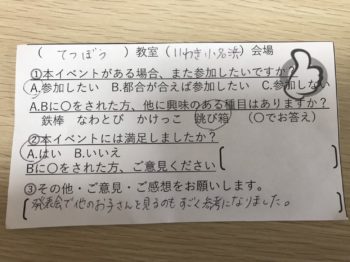 ( てつぼう )教室(いわき小名浜)会場
①本イベントがある場合、また参加したいですか?
A.参加したい B.都合が合えば参加したい C.参加しない
A.Bに〇をされた方、他に興味のある種目はありますか?
鉄棒 なわとび かけっこ 跳び箱 (〇でお答え)
②本イベントには満足しましたか?
A.はい B.いいえ
Bに〇をされた方、ご意見ください
③その他・ご意見・ご感想をお願いします。
発表会で他のお子さんを見るのもすごく参考になりました。